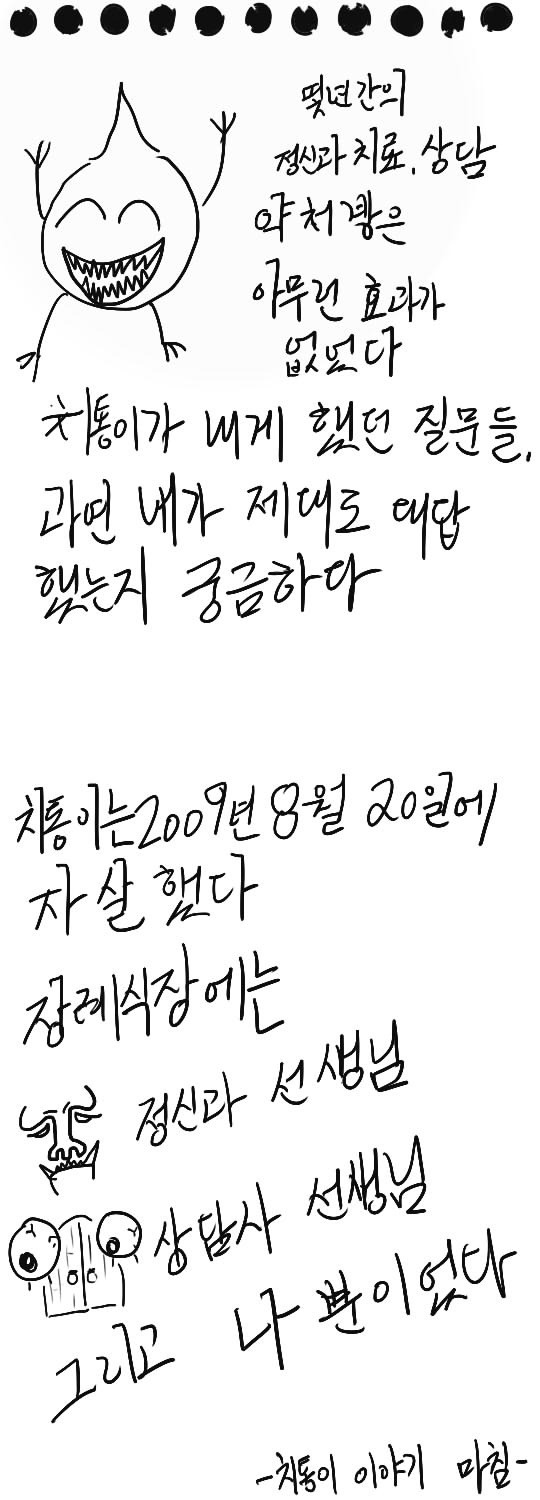 몇년간의
정신과 치료, 상담
약 처방은
아무런 효과가
없었다
치통이가 내게 했던 질문들,
과연 내가 제대로 대답
했는지 궁금하다
치통이는 2009년 8월 20일에
자살 했다
장례식장에는
정신과 선생님
상담사 선생님
그리고 나 뿐이었다
-치통이 이야기 마침-